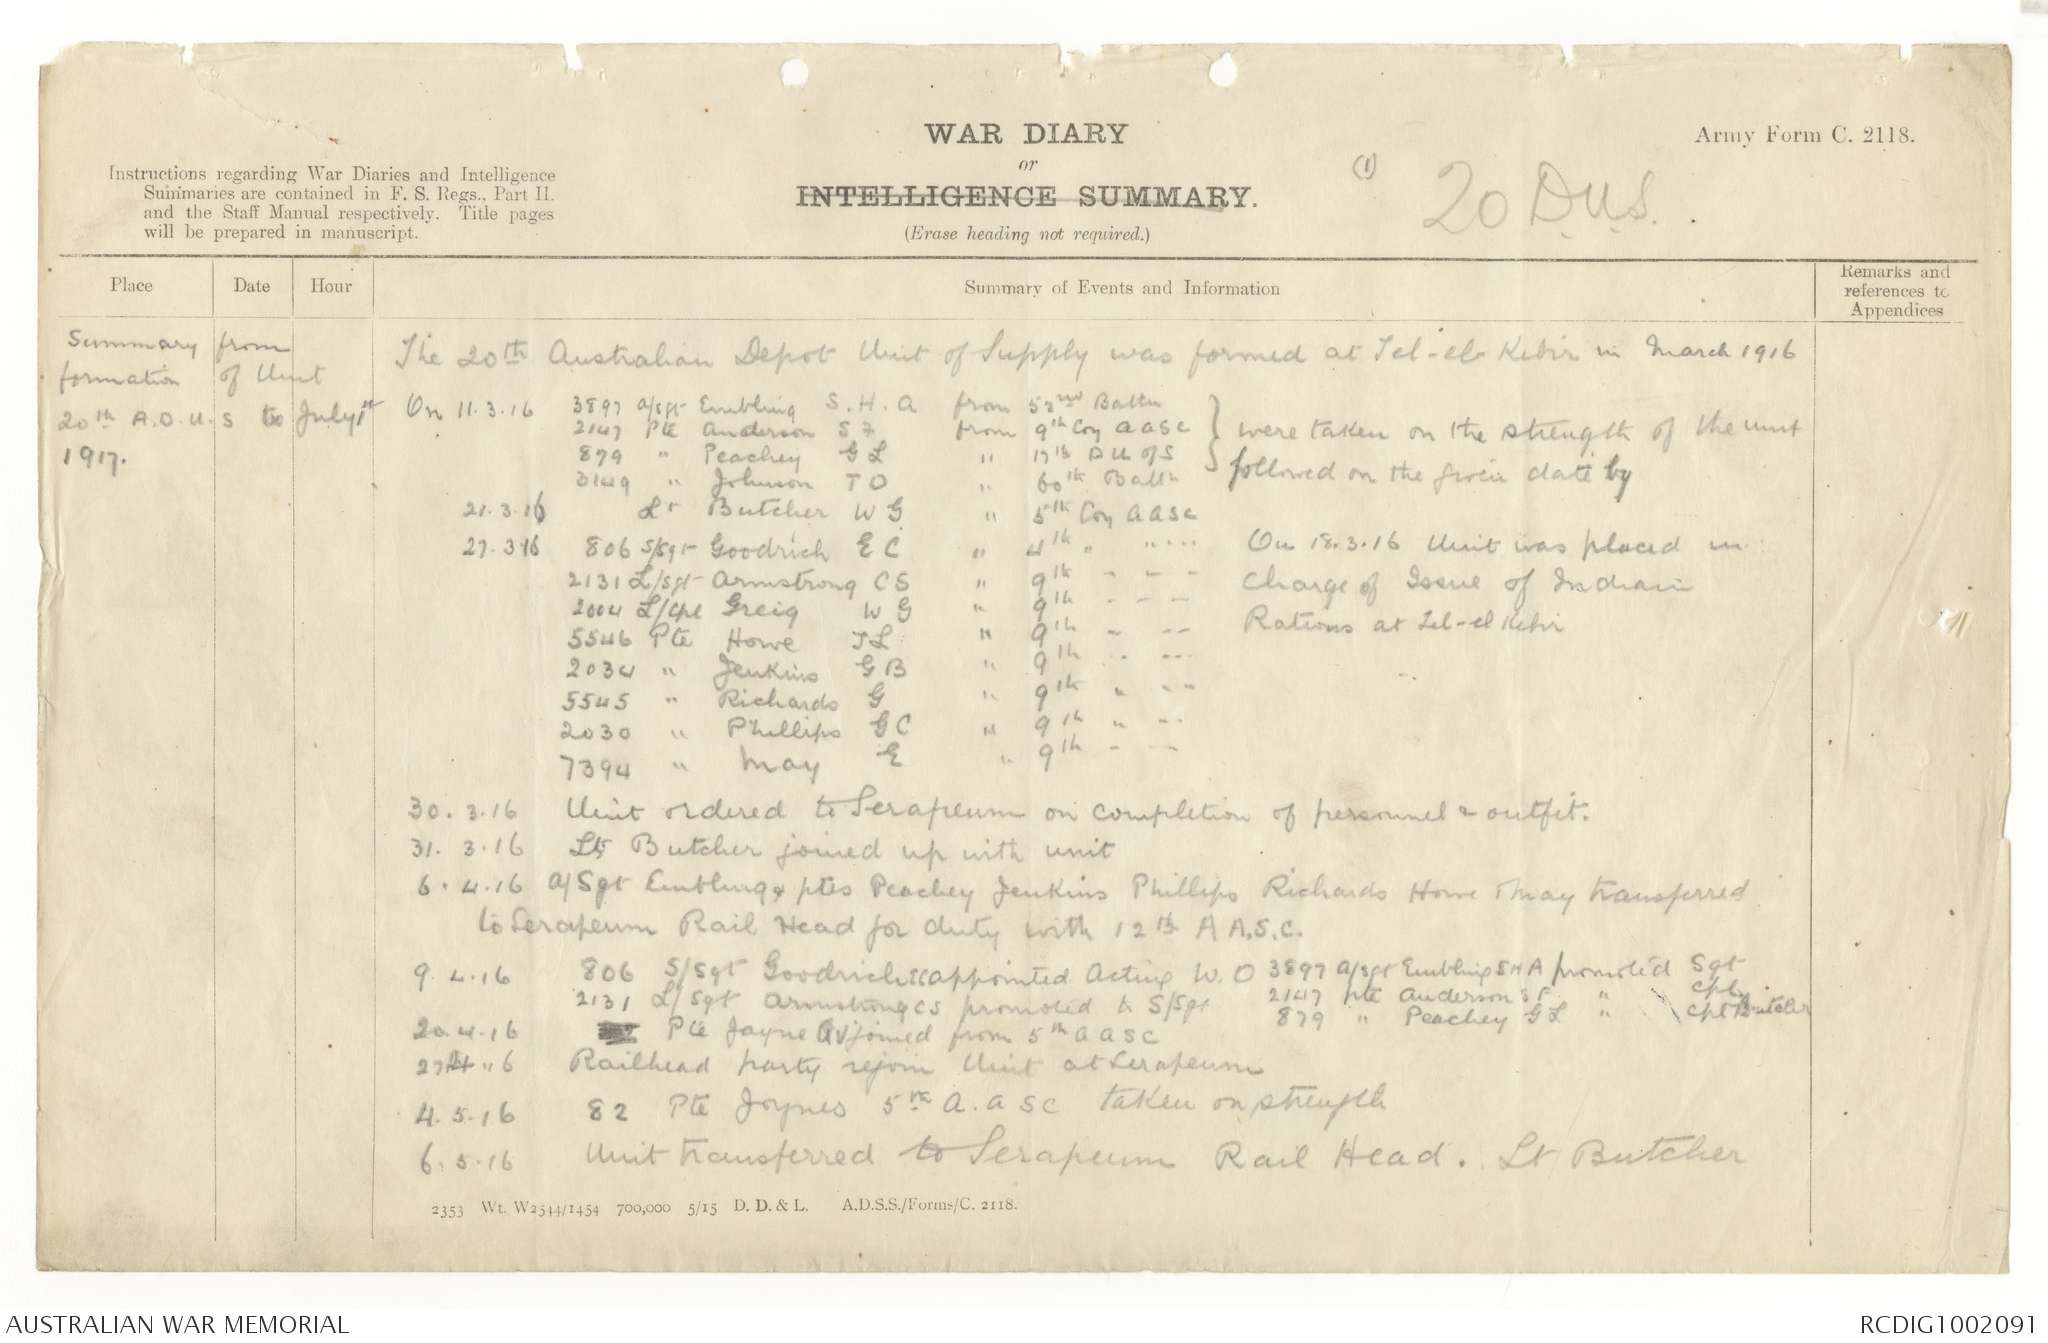 WAR DIARY
or
INTELLIGENCE SUMMARY.
(Erase heading not required.)
Army Form C. 2118.
Instructions regarding War Diaries and Intelligence
Summaries are contained in F. S. Regs., Part II.
and the Staff Manual respectively. Title pages
will be prepared in manuscript.
(1) 20 D.U.S.
Place Date Hour Summary of Events and Information Remarks and references to Appendices
Summary from
formation of Unit
20th A.D.U.S to July 1st
1917.
The 20th Australian Depot Unit of Supply was formed at Tel-el-Kebir in March 1916
On 11.3.16 3897 a/Sgt Embling S.H.A from 52nd Battn
2147 Pte Anderson S F from 9th Coy AASC
879 " Peachey G L " 17th DU of S
3149 " Johnson T O " 60th Battn
were taken on the strength of the unit
followed on the given date by
21.3.16 Lt Butcher W G " 5th Coy AASC
27.3.16 806 S/Sgt Goodrich E C " 4th " " " "
2131 L/Sgt Armstrong C S " 9th " " "
2004 L/Cpl Greig W G " 9th " " "
5546 Pte Howe J L " 9th " " "
2034 " Jenkins G B " 9th " " "
5545 " Richards G " 9th " " "
2030 " Phillips G C " 9th " " "
7394 " May E " 9th " "
On 18.3.16 Unit was placed in
charge of Issue of Indian
Rations at Tel-el Kebir
30.3.16 Unit ordered to Serapeum on completion of personnel & outfit.
31.3.16 Lt Butcher joined up with unit
6.4.16 A/Sgt Embling & ptes Peachey Jenkins Phillips Richards Howe & May transferred
to Serapeum Rail Head for duty with 12th A A.S.C.
9.4.16 806 S/Sgt Goodrich EC appointed Acting W.O 3897 A/Sgt Embling S H A promoted Sgt
2131 L/Sgt Armstrong CS promoted to S/Sgt 2147 pte Anderson S F " Cpl
879 " Peachey G L " Cpl Butcher
20.4.16 Pte Jayne AV joined from 5th AASC
27.4.16 Railhead party rejoin Unit at Serapeum
4.5.16 82 Pte Joynes 5th A.ASC taken on strength
6.5.16 Unit transferred to Serapeum Rail Head. Lt Butcher
2353 Wt. W2544/1454 700,000 5/15 D. D. & L. A.D.S.S./Forms/C. 2118.
AUSTRALIAN WAR MEMORIAL
RCDIG1002091